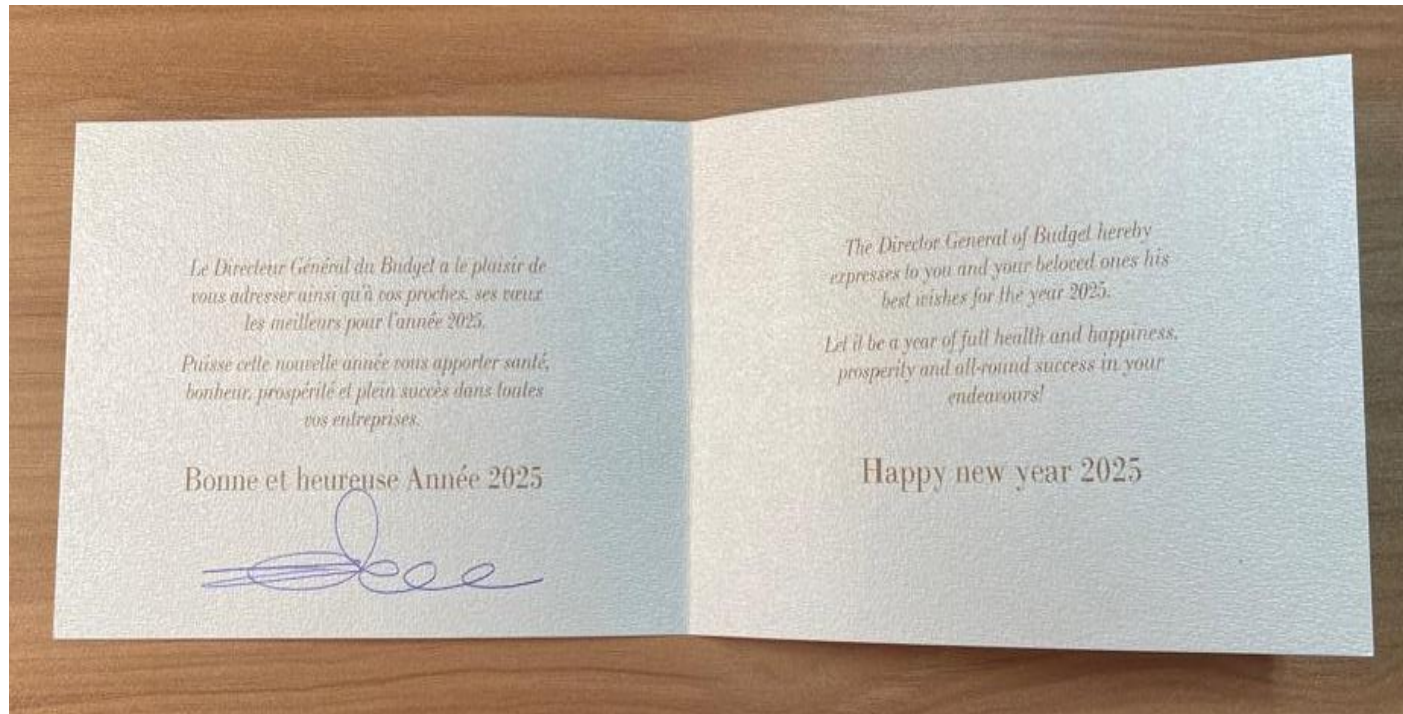 Le Directeur Général du Budget a le plaisir de
vous adresser ainsi qu'à vos proches, ses vœux
les meilleurs pour l'année 2025.
Puisse cette nouvelle année vous apporter santé,
bonheur, prospérité et plein succès dans toutes
vos entreprises.
Bonne et heureuse Année 2025
The Director General of Budget hereby
expresses to you and your beloved ones his
best wishes for the year 2025.
Let it be a year of full health and happiness,
prosperity and all-round success in your
endeavours!
Happy new year 2025